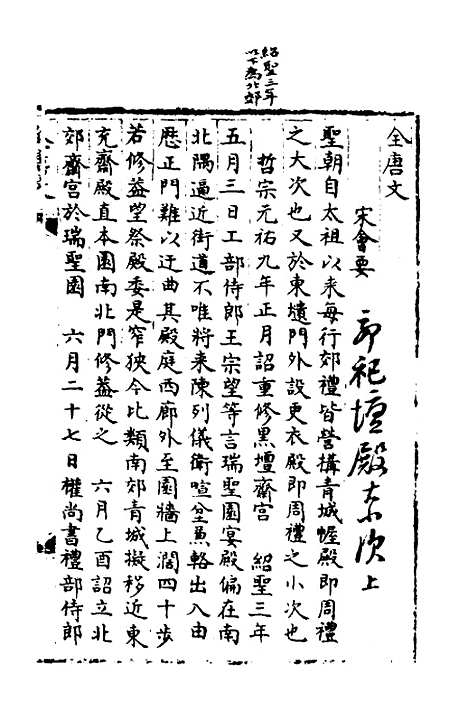 紹聖三年
以下爲北郊
全唐文
宋會要
郊祀壇殿大次上
聖朝自太祖以來每行郊禮皆營構青城幄殿即周禮
之大次也又於東壝門外設更衣殿即周禮之小次也
哲宗元祐九年正月詔重修黑壇齋宮 紹聖三年
五月三日工部侍郎王宗望等言瑞聖園宴殿偏在南
北隅逼近街道不唯將來陳列儀衛喧坌兼輅出入由
歷正門難以迂曲其殿庭西廊外至園牆上濶四十步
若修葢望祭殿委是窄狹今比類南郊青城擬移近東
充齋殿直本園南北門修葢從之 六月乙酉詔立北
郊齋宮於瑞聖園 六月二十七日權尚書禮部侍郎